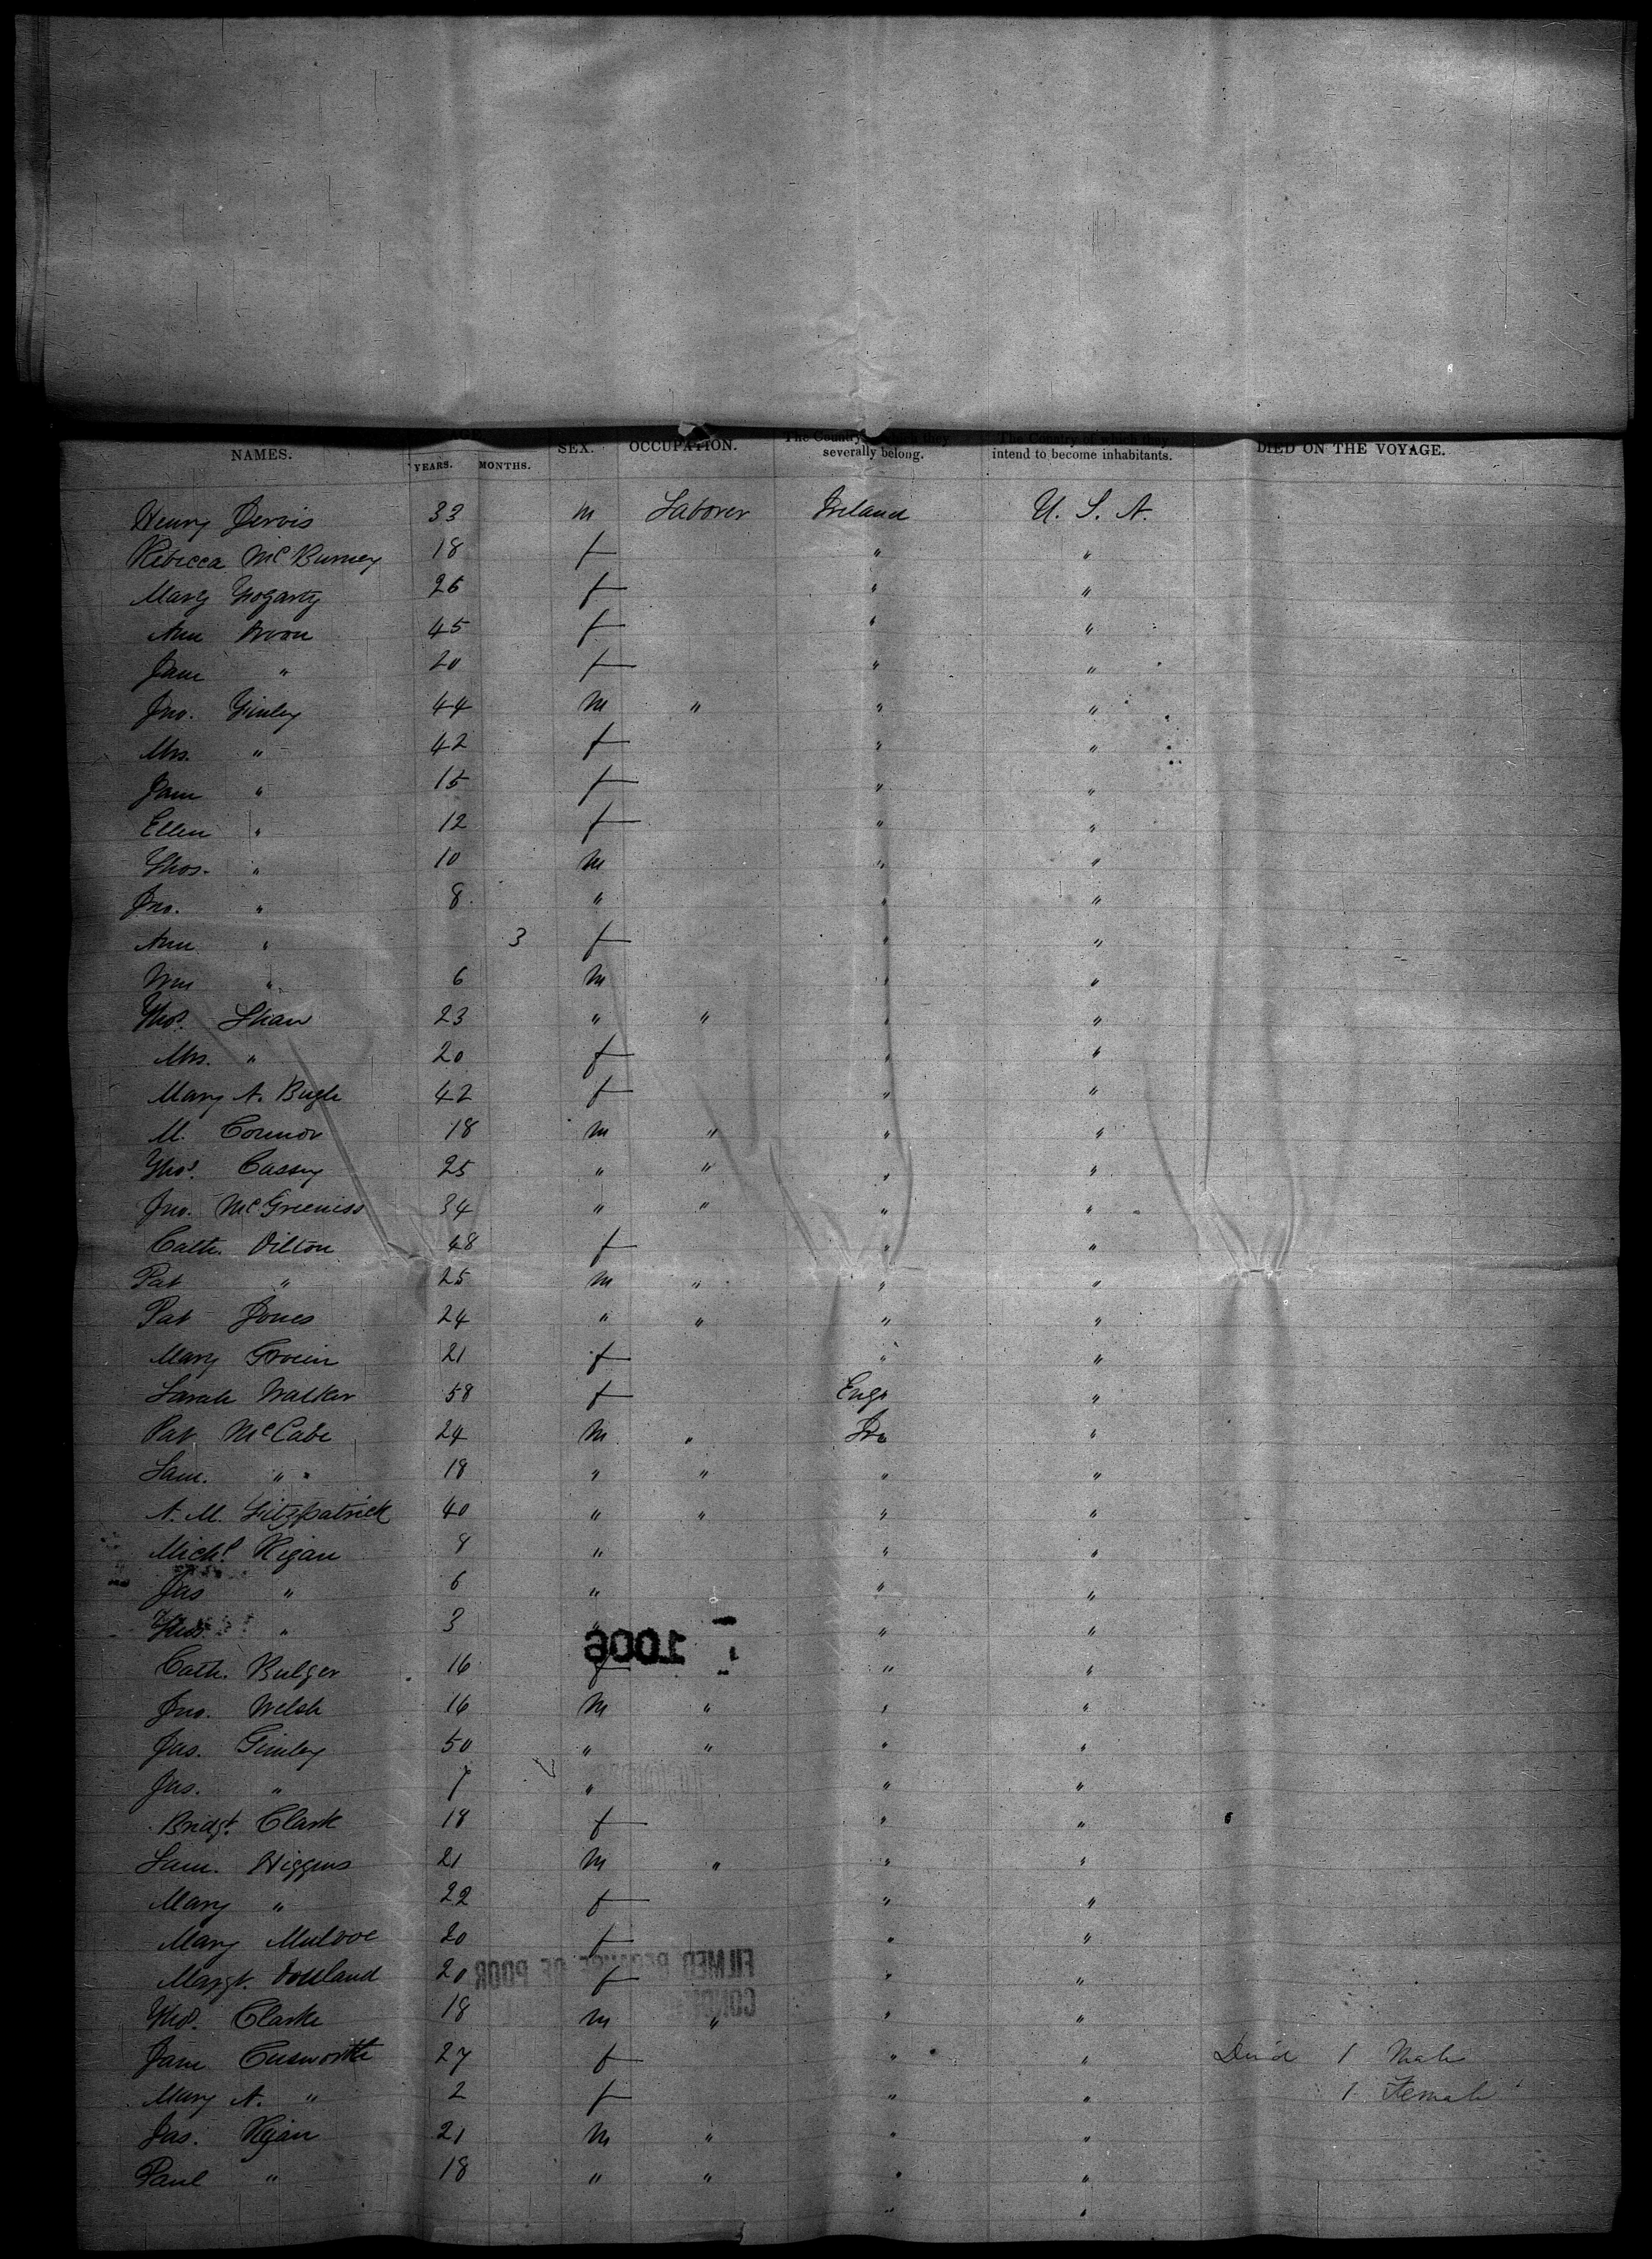 NAMES. YEARS. MONTHS. SEX. OCCUPATION. The Country of which they severally belong. The Country of which they intend to become inhabitants. DIED ON THE VOYAGE.
Henry Jervis 33 m Laborer Ireland U. S. A.
Rebecca McBurney 18 f " "
Mary Fogarty 26 f " "
Ann 45 f " "
Jane " 20 f " "
Jno. Ginley 44 M " " "
Mrs. " 42 f " "
Jane " 15 f " "
Ellen " 12 f " "
Thos. " 10 M " "
Jno. " 8 " " "
Ann " 3 f " "
Wm " 6 M " "
Thos. Shaw 23 " " " "
Mrs. " 20 f " "
Mary A. Bugle 42 f " "
M. Connor 18 m " " "
Thos. Cassey 25 " " " "
Jno. 34 " " " "
Cath. Dilton 48 f " "
Pat " 25 M " " "
Pat Jones 24 " " " "
Mary 21 f " "
Sarah Walker 58 f Eng "
Pat McCabe 24 M " Ire "
Sam. " 18 " " " "
A. M. Fitzpatrick 40 " " " "
Michl Regan " " "
Jas " 6 " " "
Thos. " 3 " " "
1006
Cath. Bulger 16 f " "
Jno. Welsh 16 M " " "
Jas. Ginley 50 " " " "
Jas. " 7 " " "
Bridgt. Clark 18 f " "
Sam. Higgins 21 M " " "
Mary " 22 f " "
Mary 20 f " "
Margt. 20 f " "
FILMED BECAUSE OF POOR
Thos. Clarke 18 m " " "
Jane Cusworth 27 f " " Died 1 Male
Mary A. " 2 f " " 1 Female
Jas. Regan 21 M " " "
Paul " 18 " " " "
" "